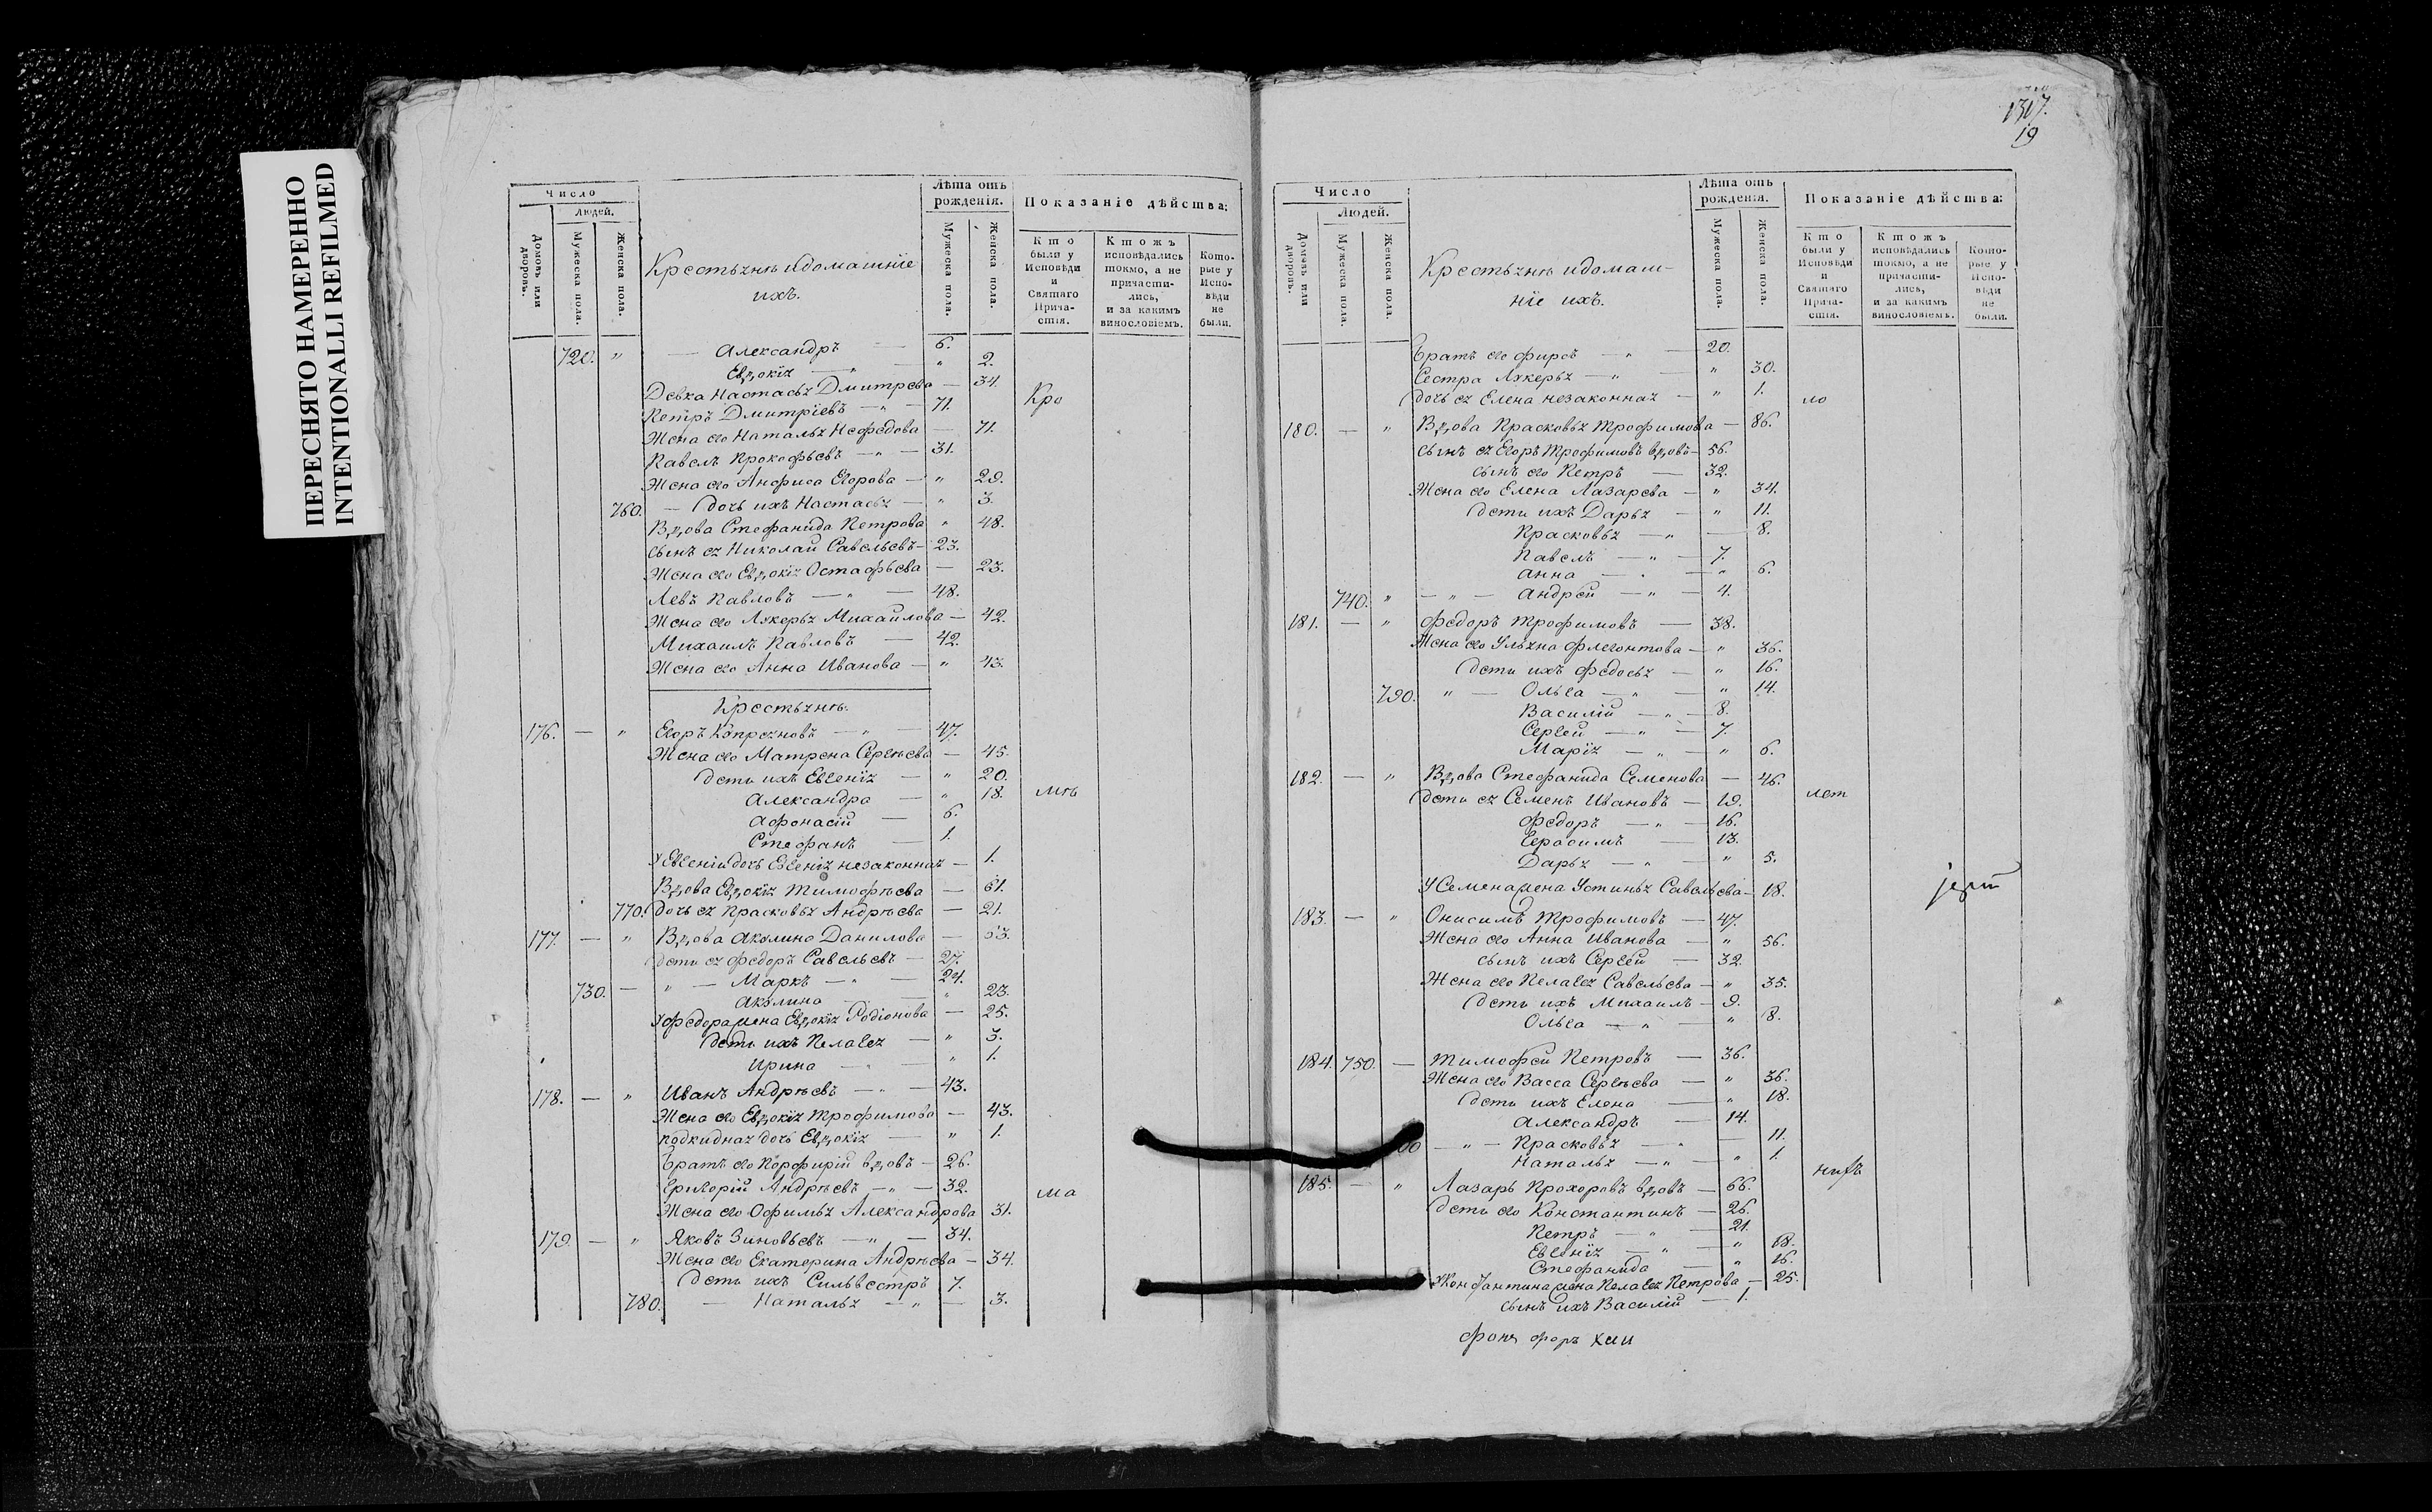 ПЕРЕСНЯТО НАМЕРЕННО
INTENTIONALLI REFILMED
Число
Людей.
Домовъ или дворовъ.
Мужеска пола.
Женска пола.
Крестьянѣ и домашніе
ихъ.
Лѣта отъ рожденія.
Мужеска пола.
Женска пола.
Показаніе дѣйства:
Кто были у Исповѣди и Святаго Прича-стія.
Ктожъ исповѣдались токмо, а не причасти-лись, и за какимъ винословіемъ.
Кото-рые у Испо-вѣди не были.
720. " — Александръ — 6.
Евдокія — " — " 2.
Девка Настасья Дмитрева — 34.
Петръ Дмитріевъ — " — 71.
Кро
Жена его Наталья Нефедова — 71.
Павелъ Прокофьевъ — " — 31.
Жена его Анфиса Егорова — " 29.
760. — дочь ихъ Настасья — " 3.
Вдова Стефанида Петрова " 48.
сынъ ея Николай Савельевъ — 23.
Жена его Евдокія Остафьева — 23.
Левъ Павловъ — " — 48.
Жена его Лукерья Михайлова — 42.
Михаилъ Павловъ — 42.
Жена его Анна Иванова — " 43.
Крестьянѣ.
176. — " Егоръ Купреяновъ — " — 47.
Жена его Матрена Сергѣева — 45.
дети ихъ Евгенія — " 20.
Александра — " 18.
мъ
Афонасій — 6.
Стефанъ — 1.
У Евгеніи дочь Евгенія незаконная — 1.
Вдова Евдокія Тимофѣева — 61.
770. дочь ея Прасковья Андрѣева — 21.
177. — " Вдова Акулина Данилова — 53.
дети ея Федоръ Савельевъ — 27.
730. — " — Маркъ — " — 24.
Акулина — " 23.
У Федора жена Евдокія Родіонова — 25.
дети ихъ Пелагея — " 3.
Ирина — " 1.
178. — " Иванъ Андрѣевъ — " — 43.
Жена его Евдокія Трофимова — 43.
подкидная дочь Евдокія — " 1.
Братъ его Порфирій вдовъ — 26.
Григорій Андрѣевъ — " — 32.
ма
Жена его Офимья Александрова 31.
179. — " Яковъ Зиновьевъ — " — 34.
Жена его Екатерина Андрѣева — 34.
дети ихъ Сильвестръ 7.
780. — Наталья — " — 3.
19
Число
Людей.
Домовъ или дворовъ.
Мужеска пола.
Женска пола.
Крестьянѣ и домаш-
ніе ихъ.
Лѣта отъ рожденія.
Мужеска пола.
Женска пола.
Показаніе дѣйства:
Кто были у Исповѣди и Святаго Прича-стія.
Ктожъ исповѣдались токмо, а не причасти-лись, и за какимъ винословіемъ.
Кото-рые у Испо-вѣди не были.
Братъ его Фирсъ — " — 20.
Сестра Лукерья — " — " 30.
дочь ея Елена незаконная — " 1.
ло
180. — " Вдова Прасковья Трофимова — 86.
сынъ ея Егоръ Трофимовъ вдовъ — 56.
сынъ его Петръ — 32.
Жена его Елена Лазарева — " 34.
дети ихъ Дарья — " 11.
Прасковья — " — 8.
Павелъ — " — 7.
Анна — " — " 6.
740. " — " — Андрей — " — 4.
181. — " Федоръ Трофимовъ — 38.
Жена его Ульяна Флегонтова — " 36.
дети ихъ Федосья — " 16.
790. " — Ольга — " — " 14.
Василій — " — 8.
Сергей — " — 7.
Марія — " — " 6.
182. — " Вдова Стефанида Семенова — 46.
дети ея Семенъ Ивановъ — 19.
Федоръ — " — 16.
Герасимъ — 13.
Дарья — " — " 5.
У Семена жена Устинья Савельева — 18.
183. — " Онисимъ Трофимовъ — 47.
Жена его Анна Иванова — " 56.
сынъ ихъ Сергей — 32.
Жена его Пелагея Савельева — " 35.
дети ихъ Михаилъ — 9.
Ольга — " — " 8.
184. 750. — Тимофей Петровъ — 36.
Жена его Васса Сергѣева — " 36.
дети ихъ Елена — " 18.
Александръ — 14.
" — Прасковья — " — 11.
Наталья — " — " 1.
185. — " Лазарь Прохоровъ вдовъ — 66.
дети его Константинъ — 26.
Петръ — " — 21.
Евгенія — " — " 18.
Стефанида — " 16.
У Константина жена Пелагея Петрова — 25.
сынъ ихъ Василій — 1.